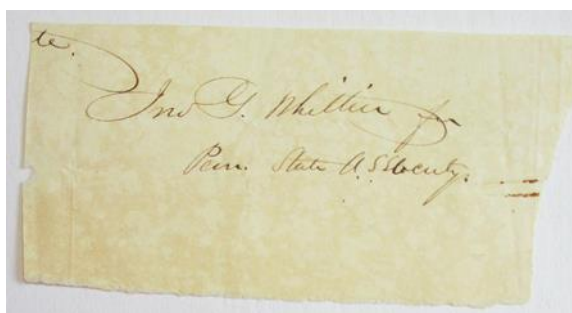 te.
Jno G. Whittier for
Penn. State A. S. Society.